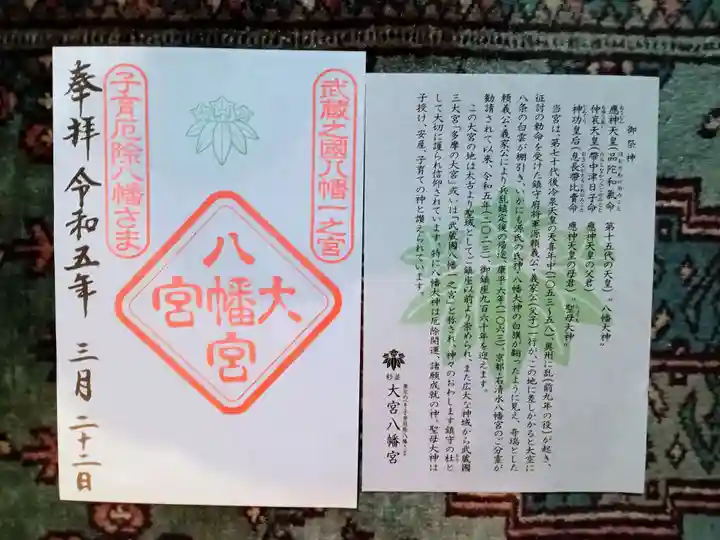 武蔵之國八幡一之宮
大宮八幡宮
子育厄除八幡さま
奉拝 令和五年 三月二十二日
御祭神
應神天皇(品陀和氣命 第十五代の天皇)“八幡大神”
仲哀天皇(帶中津日子命 應神天皇の父君)
神功皇后(息長帶比賣命 應神天皇の母君)“聖母大神”
当宮は、第七十代後冷泉天皇の天喜年中(一〇五三~五八)、奥州に乱(前九年の役)が起き、
征討の勅命を受けた鎮守府将軍源頼義公・義家公(父子)一行が、この地に差しかかると大空に
八条の白雲が棚引き、いかにも源氏の氏神・八幡大神の白旗が翻ったように見え、奇瑞とした
頼義公・義家公により兵乱鎮定後の帰途、康平六年(一〇六三)、京都・石清水八幡宮のご分霊が
勧請されて以来、令和五年(二〇二三)、御鎮座九百六十年を迎えます。
この大宮の地は太古より聖域としてご鎮座以前より崇められ、また広大な神域から武蔵國
三大宮「多摩の大宮」或いは「武蔵國八幡一之宮」と称され、神々のおわします鎮守の杜と
して大切に護られ信仰されています。特に八幡大神は厄除開運、諸願成就の神。聖母大神は
子授け、安産、子育ての神と讃えられています。
杉並
大宮八幡宮